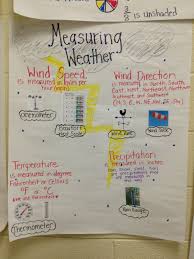 is unshaded
Measuring
Weather
Wind Speed
is measured in miles per
hour
Anemometer
Beaufort
Wind Scale
Wind Direction
is measured in North, South,
East, West, Northeast, Northwest,
Southeast and Southwest
(N, S, E, W, NE, NW, SE, SW)
Wind Vane
Wind Sock
Temperature
is measured in degrees
Fahrenheit or Celsius
°F or °C
Thermometer
Precipitation
is measured in inches
Rain, snow, sleet, hail
Rain Gauge